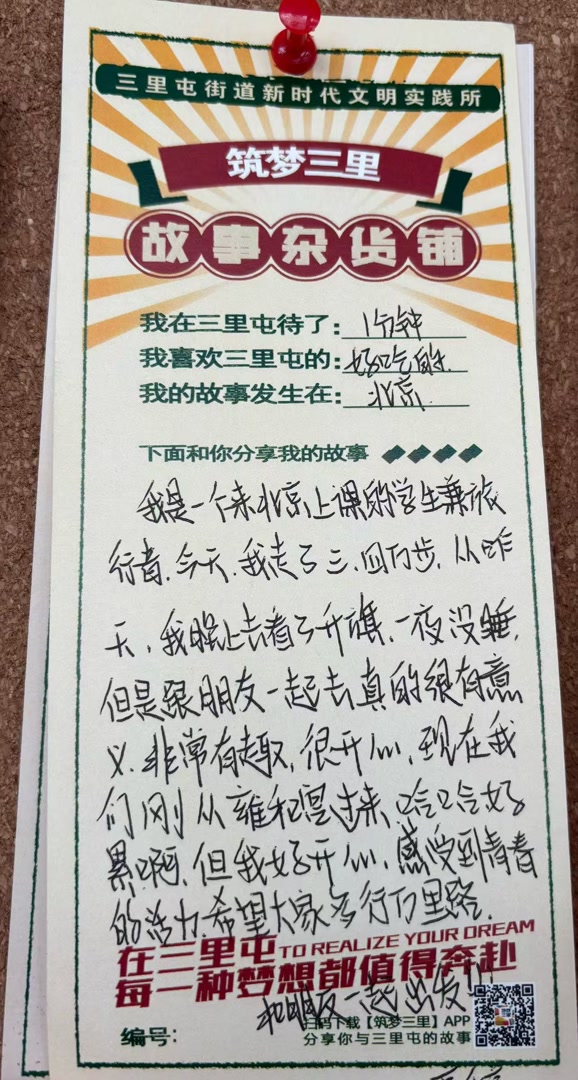 三里屯街道新时代文明实践所
筑梦三里
故事杂货铺
我在三里屯待了：1分钟
我喜欢三里屯的：好吃的.
我的故事发生在：北京.
下面和你分享我的故事
我是一个来北京上课的学生兼旅
行者.今天.我走了三.四万步.从昨
天,我晚上去看了升旗.一夜没睡,
但是跟朋友一起去真的很有意
义.非常有趣,很开心,现在我
们刚从雍和宫过来,哈哈好
累啊,但我好开心,感受到青春
的活力.希望大家多行万里路.
在三里屯 TO REALIZE YOUR DREAM
每一种梦想都值得奔赴
和朋友一起出发!!!
扫码下载【筑梦三里】APP
编号：
分享你与三里屯的故事